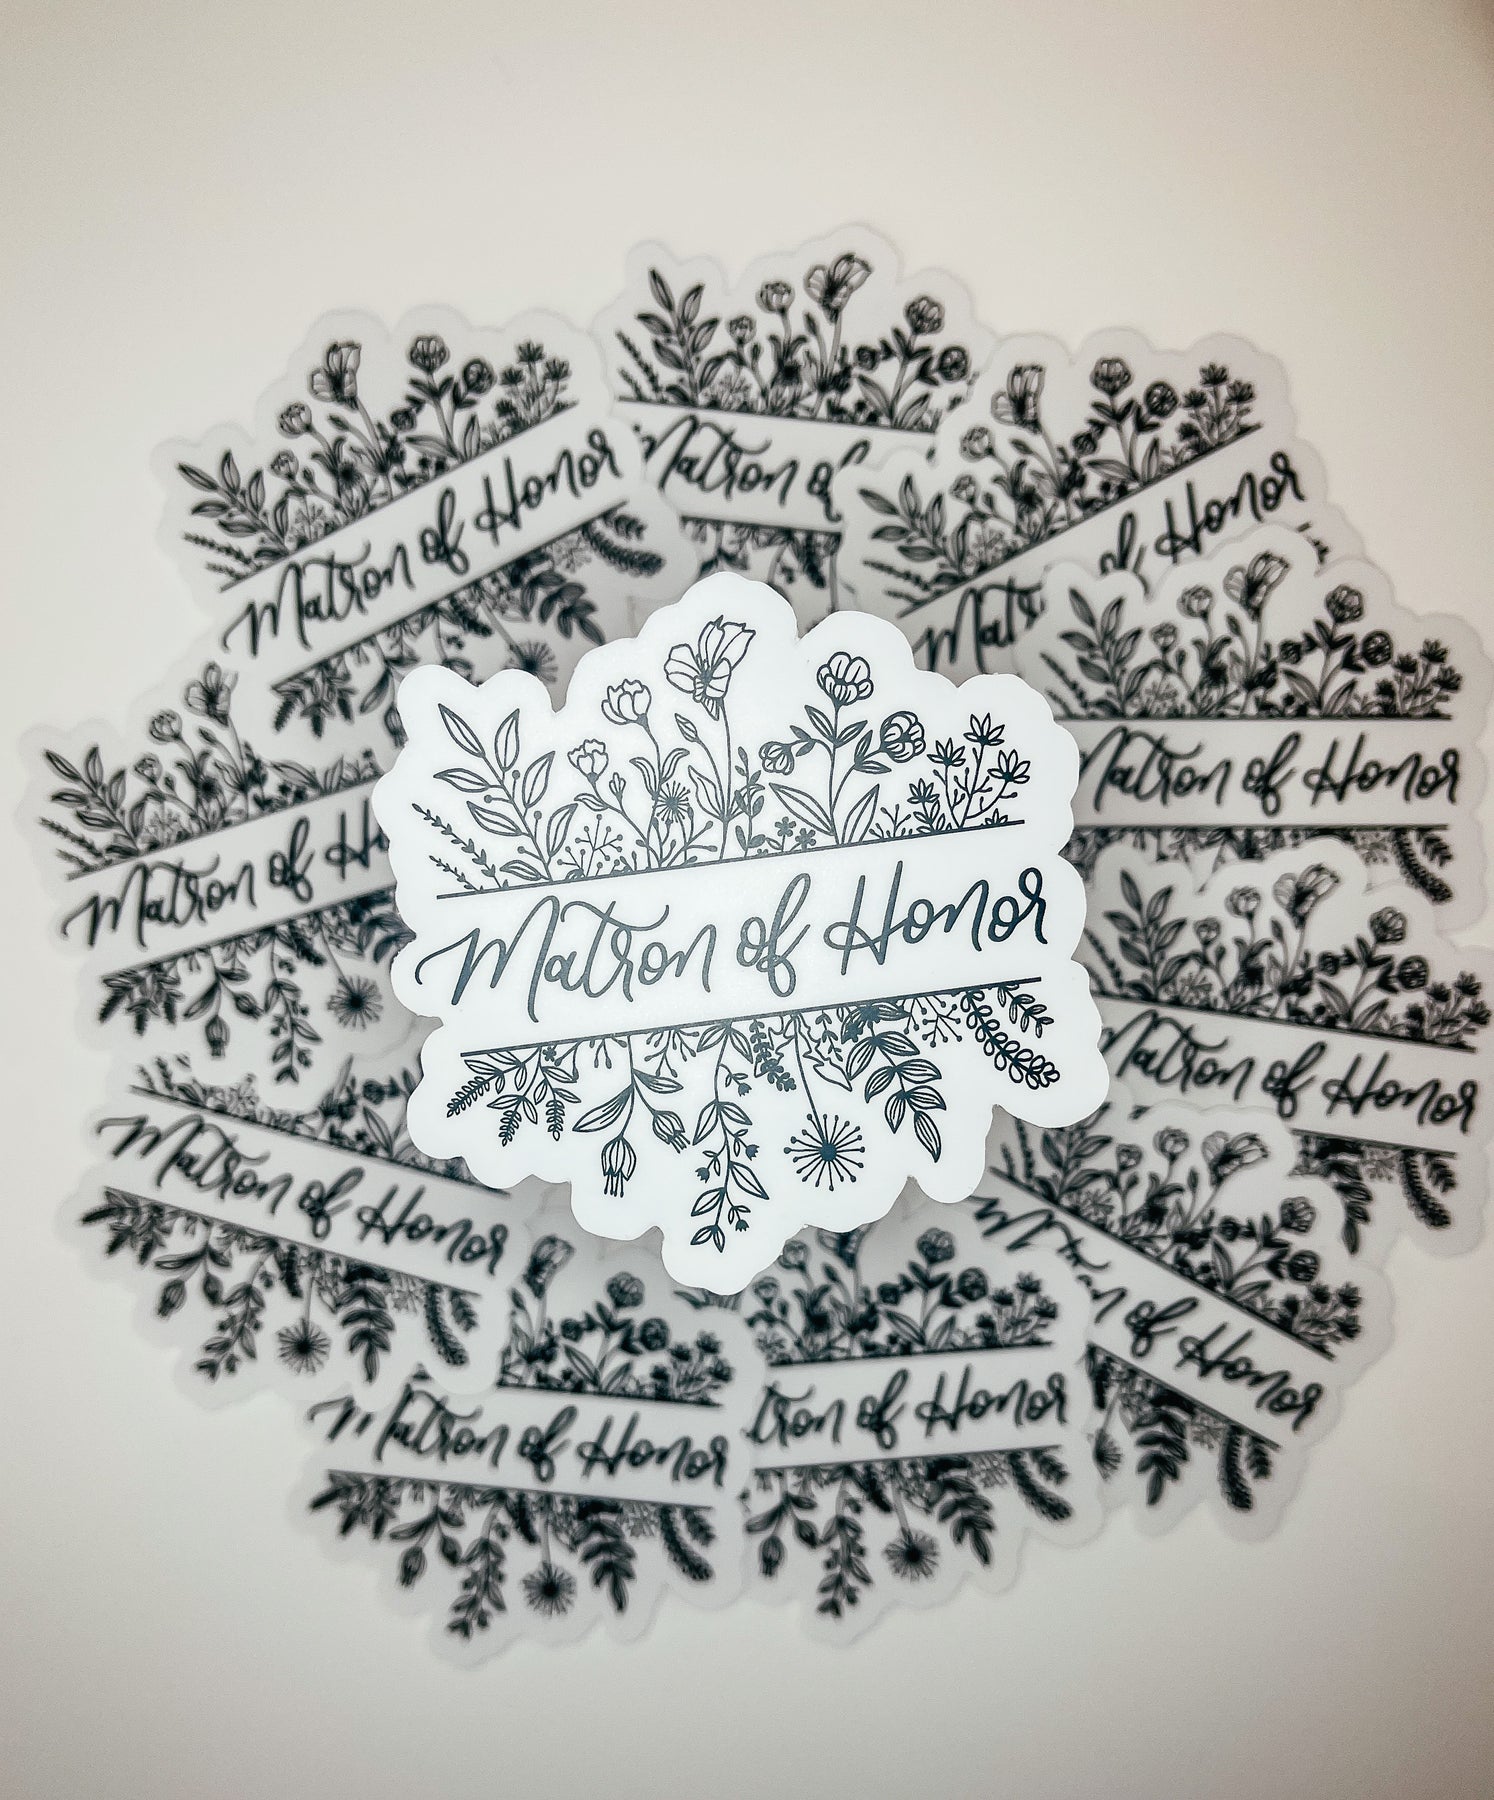 Matron of Honor
Matron of
Matron of Honor
Matron of Honor
Matron of Honor
Matron of Honor
Matron of Ho
Matron of Honor
Matron of Honor
Matron of Honor
of Honor
Matron of Honor
tron of Honor